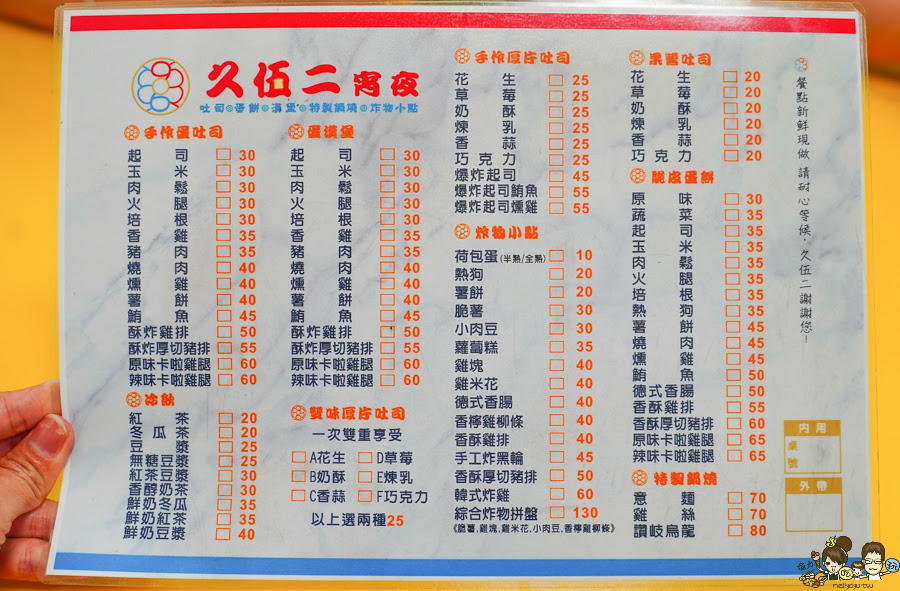 久伍二宵夜
吐司◎蛋餅◎漢堡◎特製鍋燒◎炸物小點
手作蛋吐司
起司 30
玉米 30
肉鬆 30
火腿 30
培根 30
香雞 35
豬肉 35
燒肉 40
燻雞 40
薯餅 40
鮪魚 45
酥炸雞排 50
酥炸厚切豬排 55
原味卡啦雞腿 60
辣味卡啦雞腿 60
冷飲
紅茶 20
冬瓜茶 20
豆漿 25
無糖豆漿 25
紅茶豆漿 30
香醇奶茶 30
鮮奶冬瓜 35
鮮奶紅茶 35
鮮奶豆漿 40
蛋漢堡
起司 30
玉米 30
肉鬆 30
火腿 30
培根 30
香雞 35
豬肉 35
燒肉 40
燻雞 40
薯餅 40
鮪魚 45
酥炸雞排 50
酥炸厚切豬排 55
原味卡啦雞腿 60
辣味卡啦雞腿 60
雙味厚片吐司
一次雙重享受
A花生 D草莓
B奶酥 E煉乳
C香蒜 F巧克力
以上選兩種25
手作厚片吐司
花生 25
草莓 25
奶酥 25
煉乳 25
香蒜 25
巧克力 25
爆炸起司 45
爆炸起司鮪魚 55
爆炸起司燻雞 55
炸物小點
荷包蛋(半熟/全熟) 10
熱狗 20
薯餅 20
脆薯 30
小肉豆 30
蘿蔔糕 35
雞塊 40
雞米花 40
德式香腸 40
香檸雞柳條 40
香酥雞排 40
手工炸黑輪 45
香酥厚切豬排 50
韓式炸雞 60
綜合炸物拼盤 130
《脆薯,雞塊,雞米花,小肉豆,香檸雞柳條》
果醬吐司
花生 20
草莓 20
奶酥 20
煉乳 20
香蒜 20
巧克力 20
脆皮蛋餅
原味 30
蔬菜 35
起司 35
玉米 35
肉鬆 35
火腿 35
培根 35
熱狗 35
薯餅 45
燒肉 45
燻雞 45
鮪魚 50
德式香腸 50
香酥雞排 55
香酥厚切豬排 60
原味卡啦雞腿 65
辣味卡啦雞腿 65
特製鍋燒
意麵 70
雞絲 70
讚岐烏龍 80
餐點新鮮現做 請耐心等候,久伍二謝謝您!
內用
桌號
外帶
meiyoyo.tw